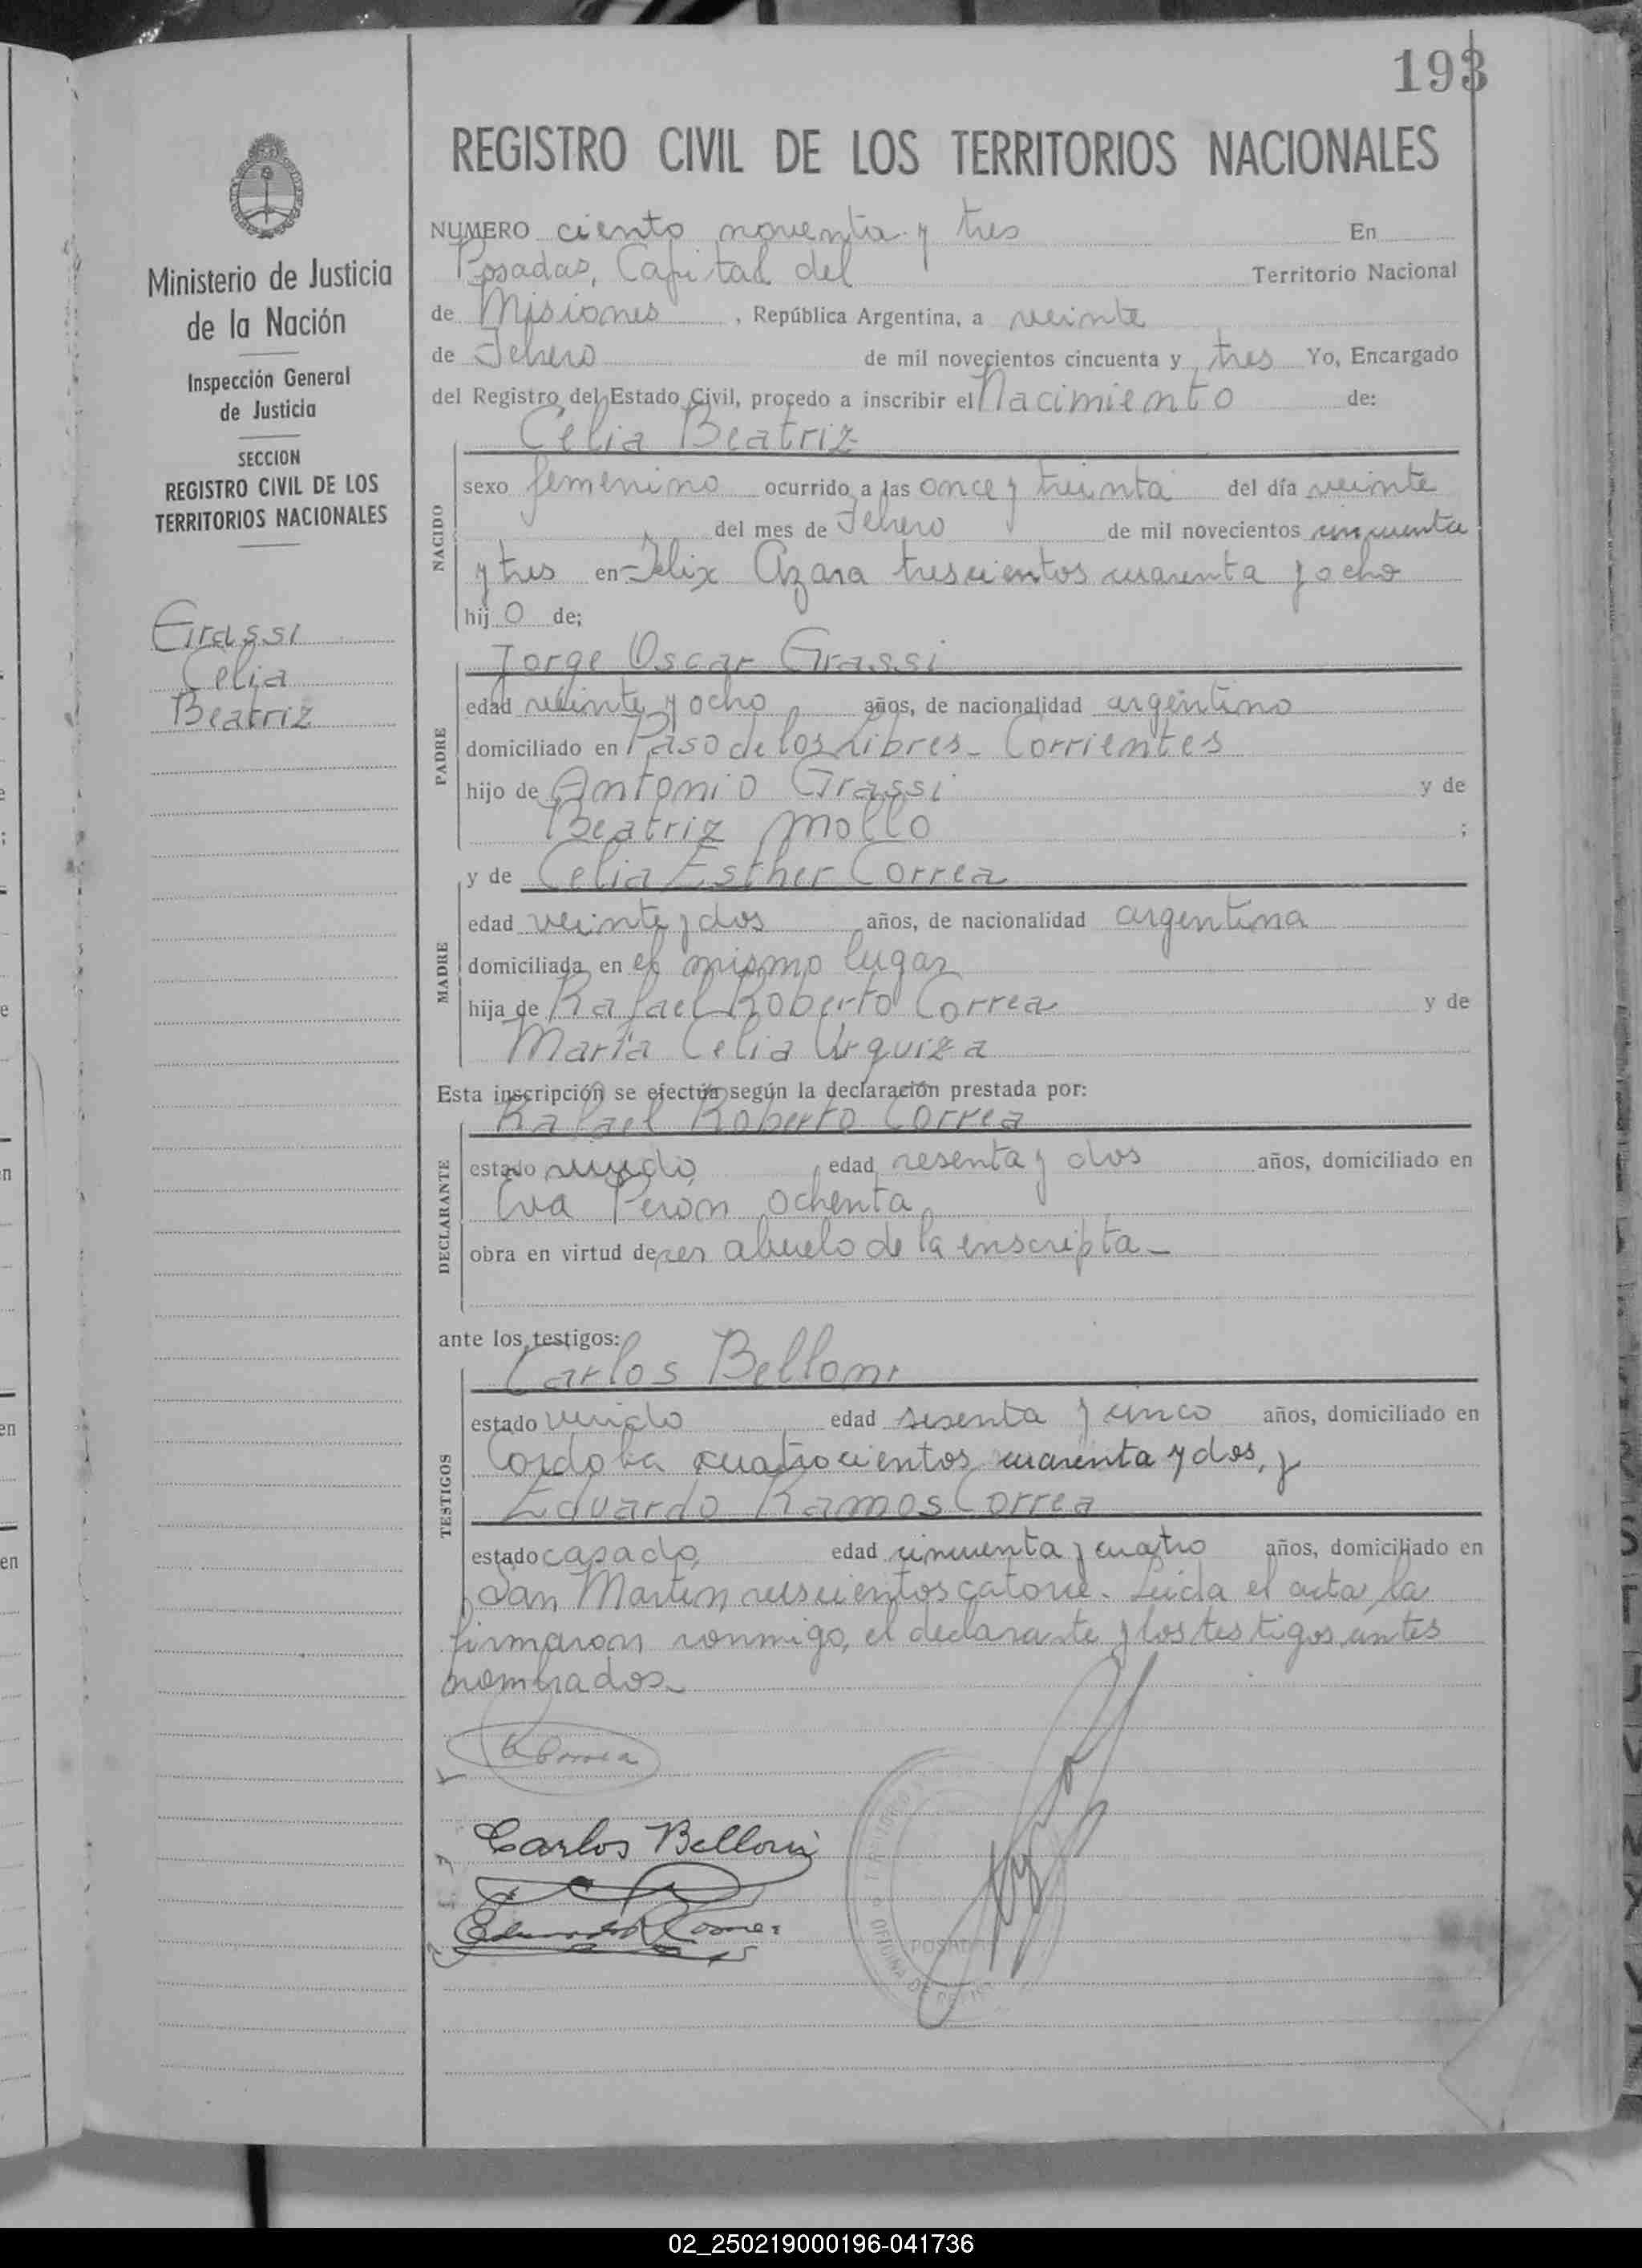 193
REGISTRO CIVIL DE LOS TERRITORIOS NACIONALES
Ministerio de Justicia
de la Nación
Inspección General
de Justicia
SECCION
REGISTRO CIVIL DE LOS
TERRITORIOS NACIONALES
Grassi
Celia
Beatriz
NUMERO ciento noventa y tres En
Posadas, Capital del Territorio Nacional
de Misiones, República Argentina, a veinte
de Febrero de mil novecientos cincuenta y tres Yo, Encargado
del Registro del Estado Civil, procedo a inscribir el Nacimiento de:
Celia Beatriz
NACIDO
sexo femenino ocurrido a las once y treinta del día veinte
del mes de Febrero de mil novecientos cincuenta
y tres en Felix Azara trescientos cuarenta y ocho
hij o de;
Jorge Oscar Grassi
PADRE
edad veinte y ocho años, de nacionalidad argentino
domiciliado en Paso de los Libres - Corrientes
hijo de Antonio Grassi y de
Beatriz Mollo ;
y de Celia Esther Correa
MADRE
edad veinte y dos años, de nacionalidad argentina
domiciliada en el mismo lugar
hija de Rafael Roberto Correa y de
María Celia Urquiza
Esta inscripción se efectúa según la declaración prestada por:
Rafael Roberto Correa
DECLARANTE
estado viudo, edad sesenta y dos años, domiciliado en
Eva Peron ochenta
obra en virtud de ser abuelo de la inscripta -
ante los testigos:
Carlos Belloni
TESTIGOS
estado viudo edad sesenta y cinco años, domiciliado en
Cordoba cuatrocientos cuarenta y dos, y
Eduardo Ramos Correa
estado casado, edad cincuenta y cuatro años, domiciliado en
San Martin seiscientos catorce. Leida el acta, la
firmaron conmigo, el declarante y los testigos antes
nombrados.
Carlos Belloni
POSADAS
02_250219000196-041736